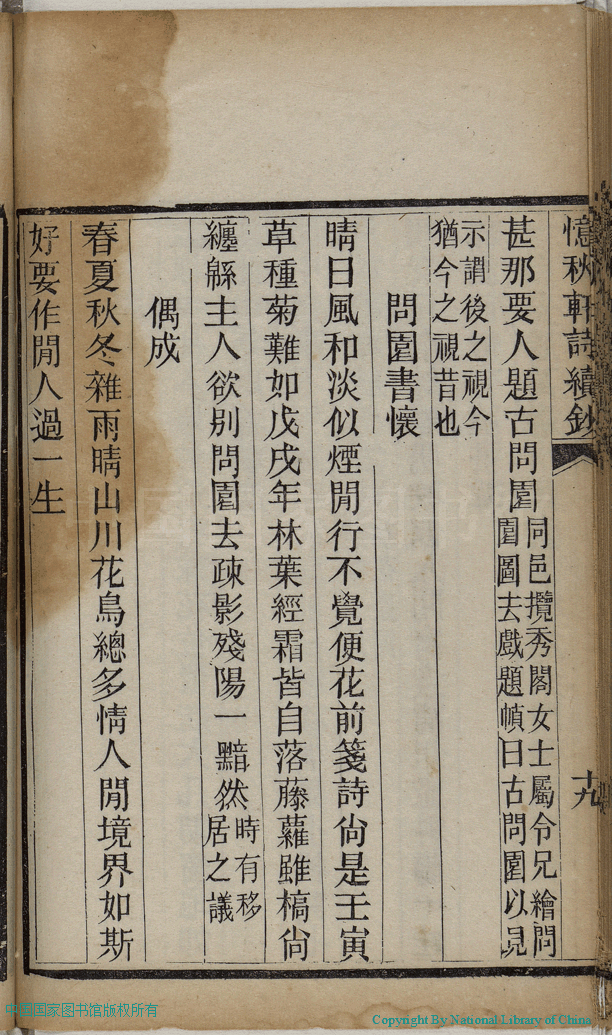 憶秋軒詩續鈔
十九
甚那要人題古問園同邑攬秀閣女士屬令兄繪問
園圖去戲題幀曰古問園以見
示謂後之視今
猶今之視昔也
問園書懷
晴日風和淡似煙閒行不覺便花前箋詩尙是壬寅
草種菊難如戊戌年林葉經霜皆自落藤蘿雖槁尙
纏緜主人欲别問園去疎影殘陽一黯然時有移
居之議
偶成
春夏秋冬雜雨晴山川花鳥總多情人閒境界如斯
好要作閒人過一生
中国国家图书馆版权所有
Copyright By National Library of China